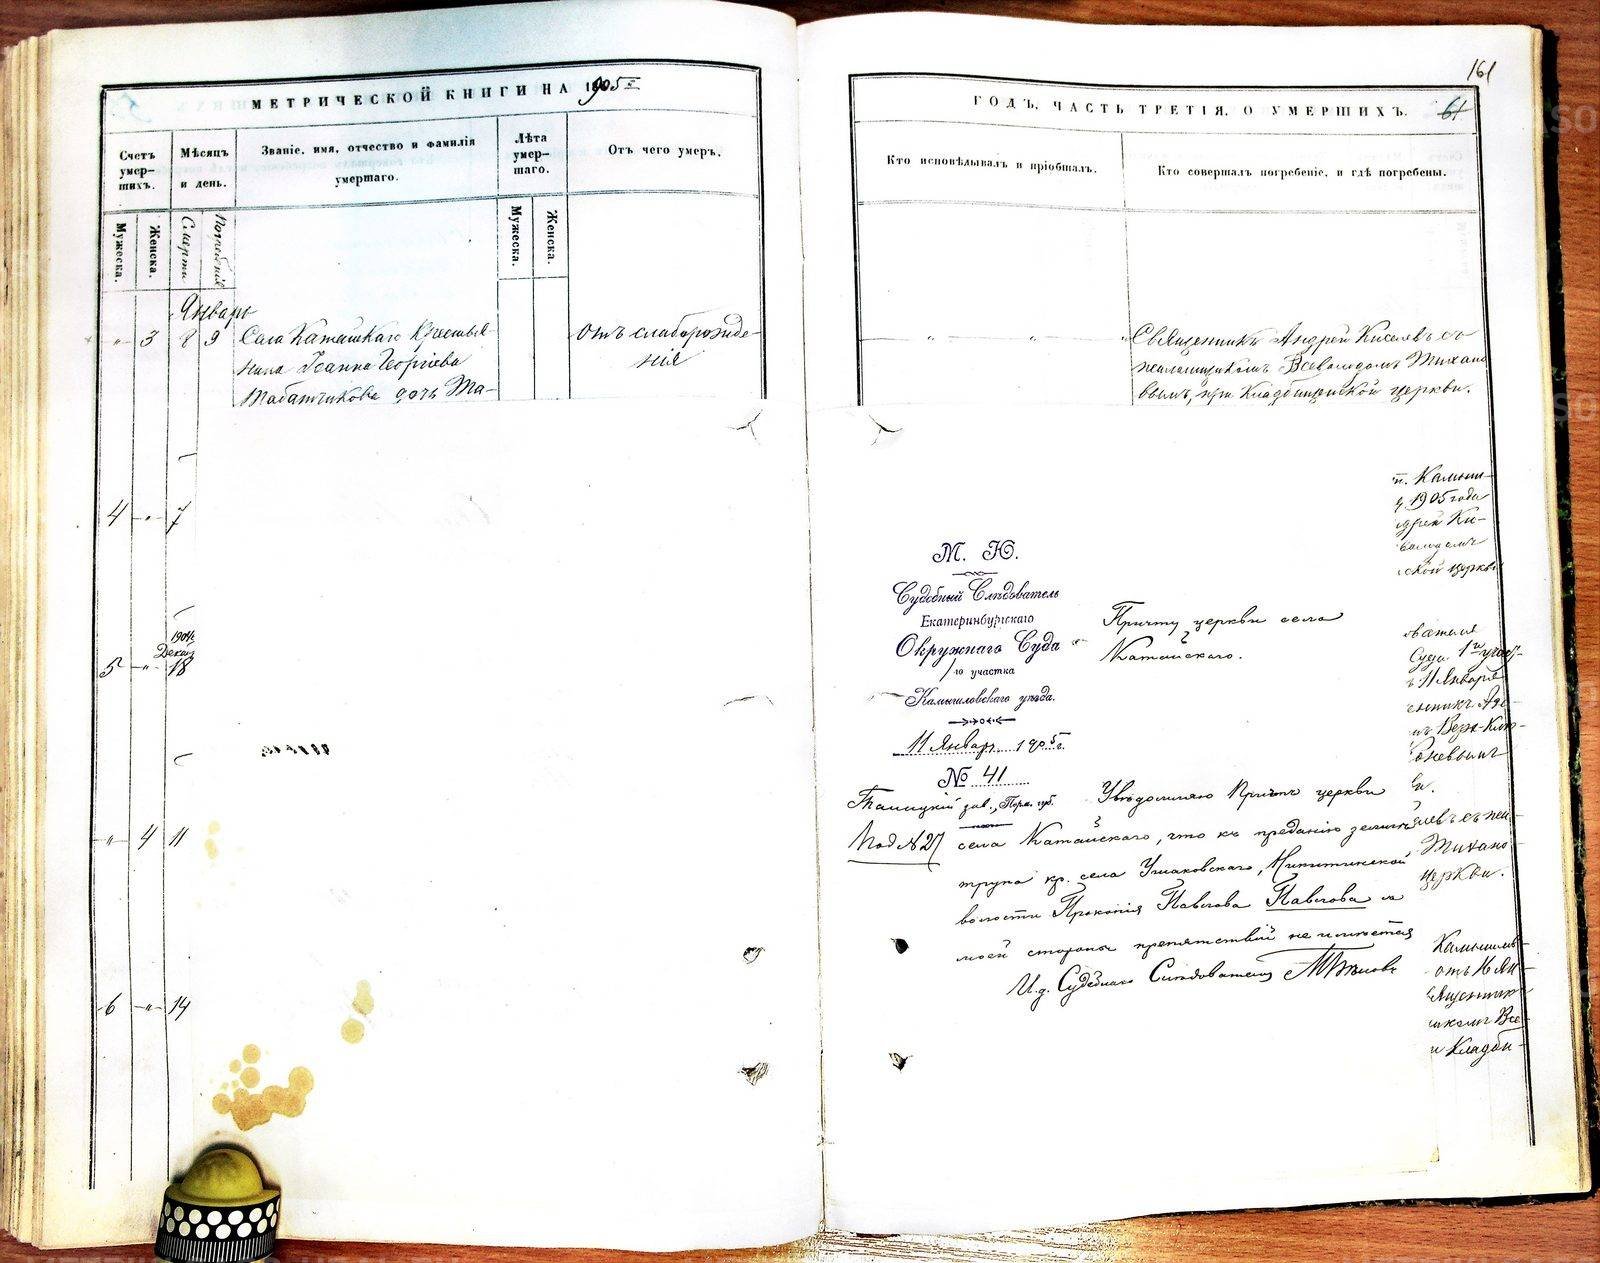 МЕТРИЧЕСКОЙ КНИГИ НА 1905
Счетъ умер-шихъ.
Мужеска.
Женска.
Мѣсяцъ и день.
Смерти
Погребенія
Званіе, имя, отчество и фамилія умершаго.
Лѣта умер-шаго.
Мужеска.
Женска.
Отъ чего умеръ.
Январь
" 3 8 9 Села Катайскаго Крестья-
нина Іоанна Георгіева
Табатчикова дочь Та-
Отъ слаборожде-
нія
4 " 7
1904
Декаб
5 " 18
" 4 11
6 " 14
161
61
ГОДЪ, ЧАСТЬ ТРЕТІЯ, О УМЕРШИХЪ.
Кто исповѣдывалъ и пріобщалъ.
Кто совершалъ погребеніе, и гдѣ погребены.
" " "
Священникъ Андрей Киселевъ съ
псаломщикомъ Всеволодомъ Тихано
вымъ, при Кладбищенской церкви.
Камыш-
1905 года
дрей Ки-
ской церкви
М. Ю.
Судебный Слѣдователь
Екатеринбургскаго
Окружнаго Суда
1го участка
Камышловскаго уѣзда.
11 Январ. 1905 г.
№ 41
Талицкій зав., Перм. губ.
Под № 27
Причту церкви села
Катайскаго.
Увѣдомляю Причтъ церкви
села Катайскаго, что къ преданію землѣ
трупа кр. села Ушаковскаго, Никитинской
волости Прокопія Павлова Павлова съ
моей стороны препятствій не имѣется
И. д. Судебнаго Слѣдователя
Суда 1го участ-
11 Января
Тихано
церкви.
Камышлов-
отъ 16 Ян-
вященник
Все
и Кладби-